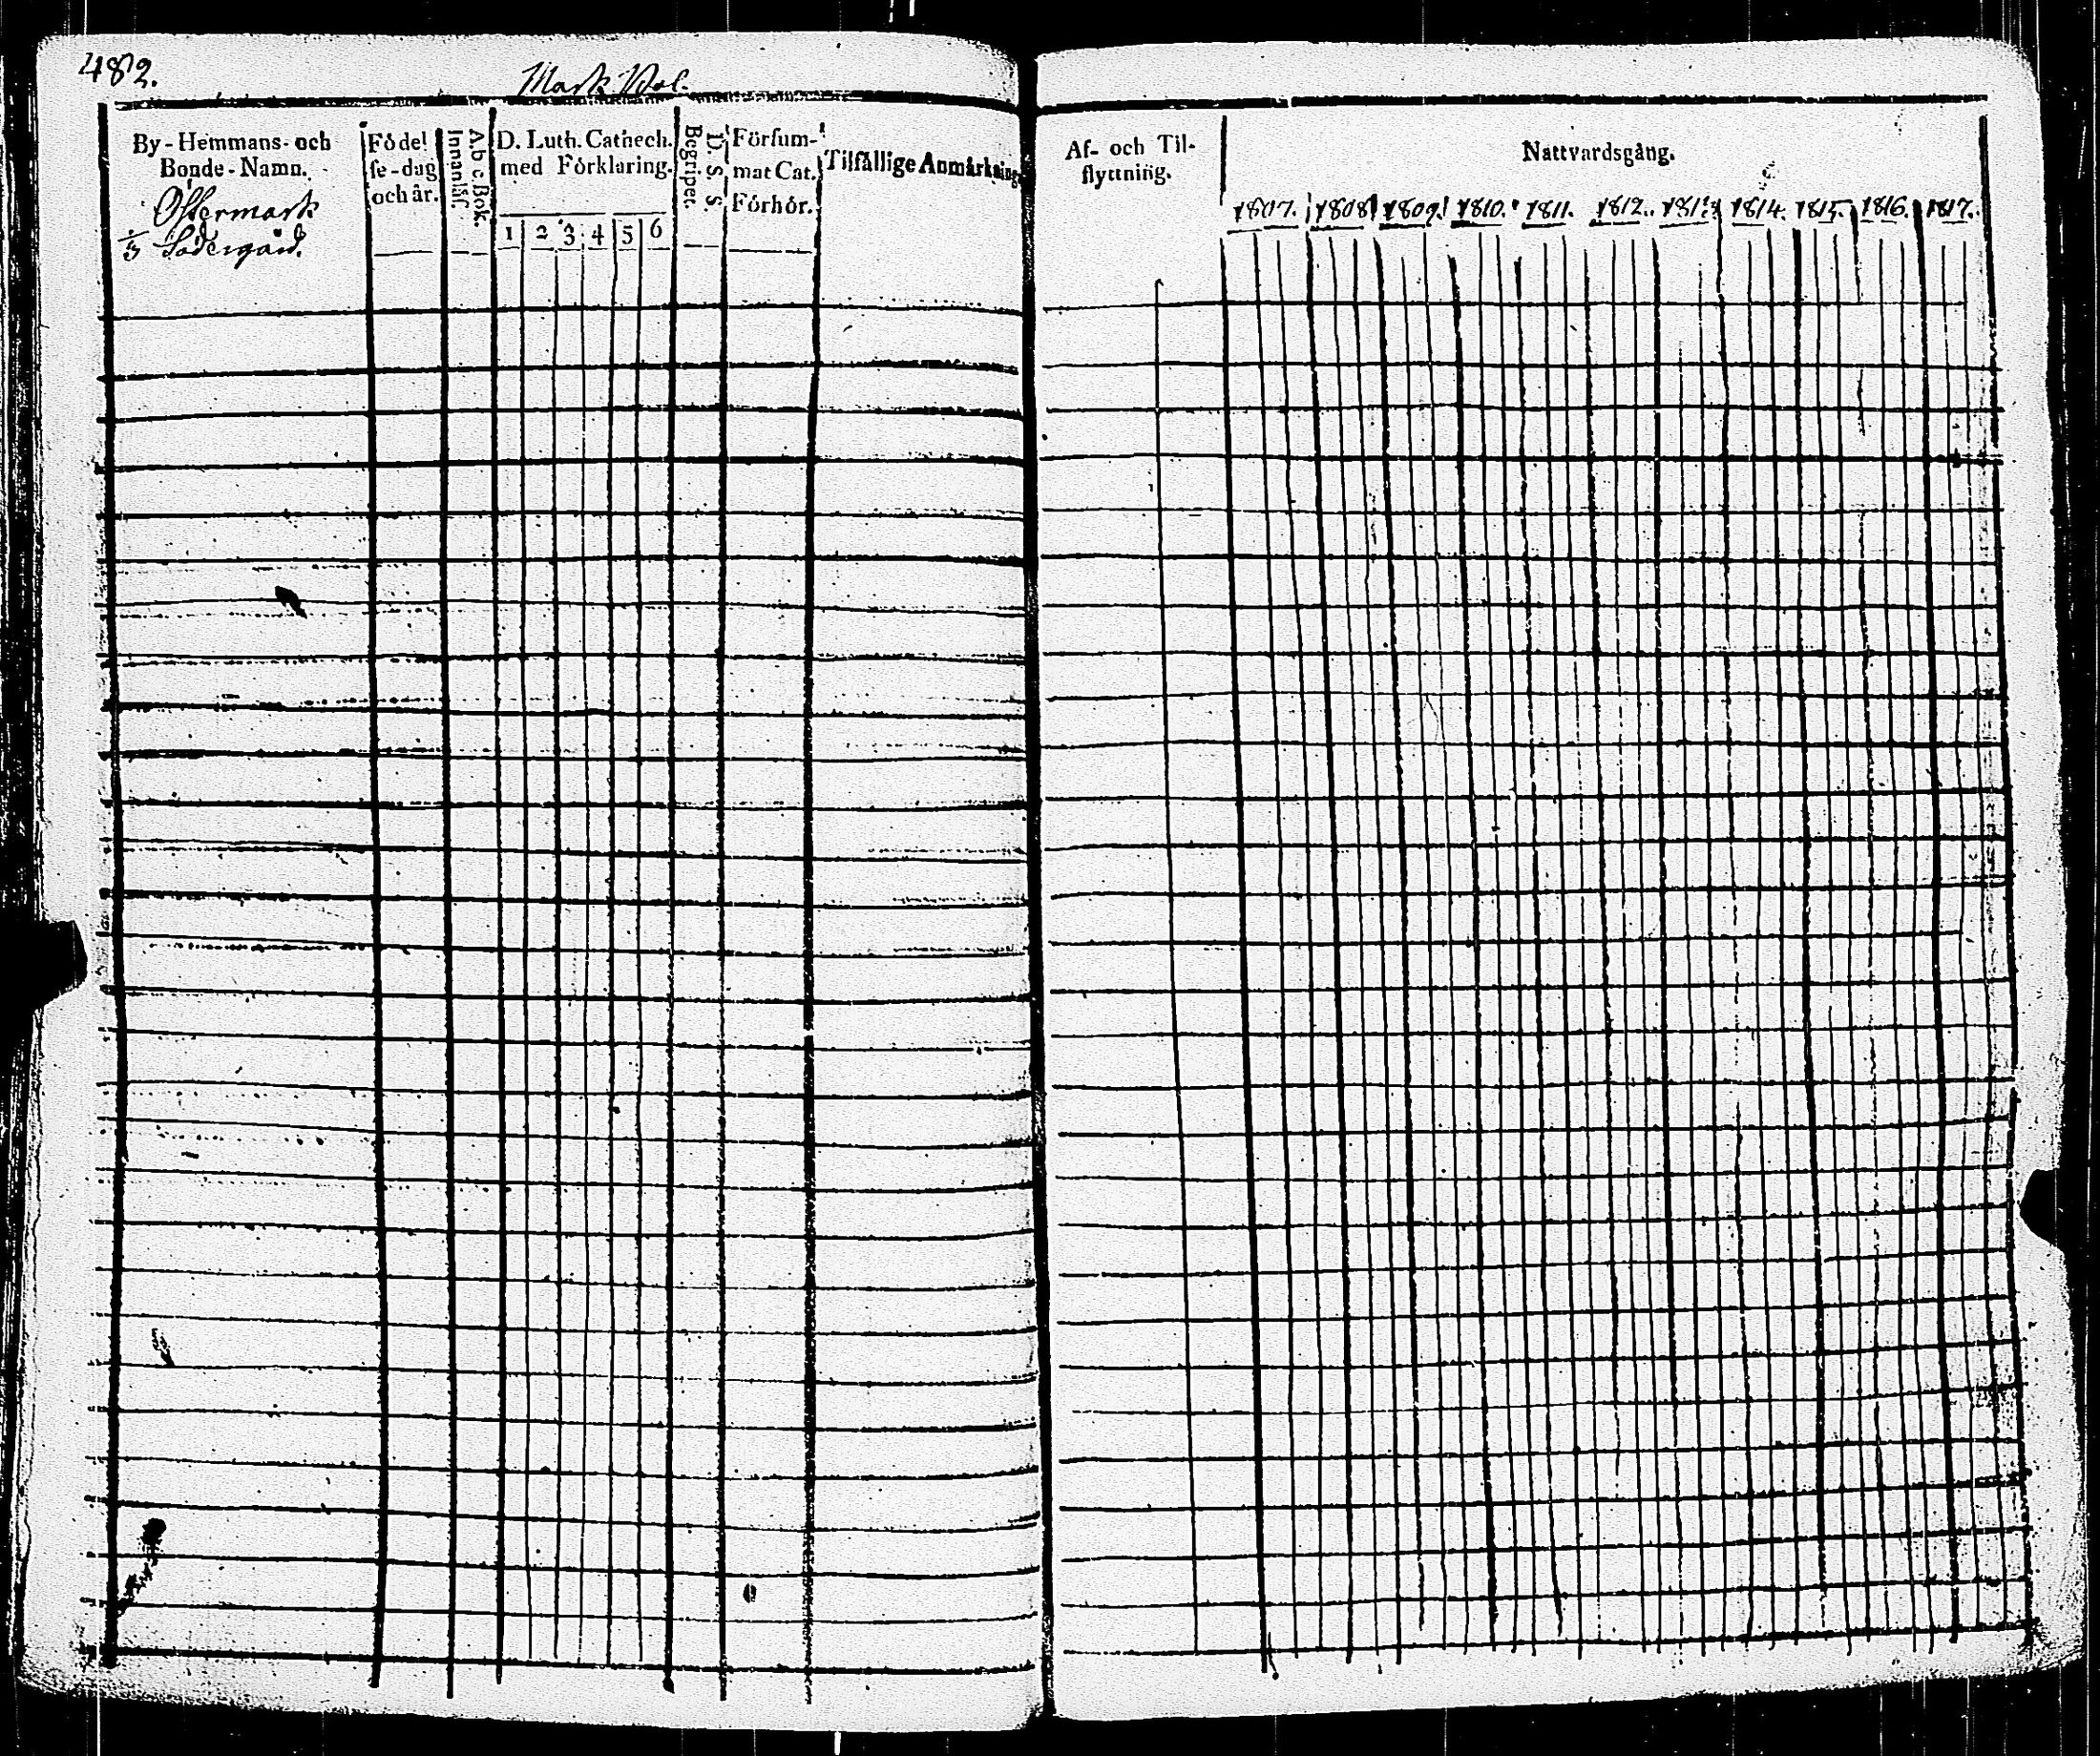 482.
Mark Rol.
By-Hemmans- och
Bonde-Namn.
Östermark
1/3 Södergård.
Födel
se-dag
och år.
A b c Bok.
Innanläs.
D. Luth. Cathech.
med Förklaring.
1 2 3 4 5 6
D. S. S.
Begriper.
Försum-
mat Cat.
Förhör.
Tilfällige Anmärkning
Af- och Til-
flyttning.
Nattvardsgång.
1807. 1808 1809. 1810. 1811. 1812. 1813 1814. 1815. 1816. 1817.